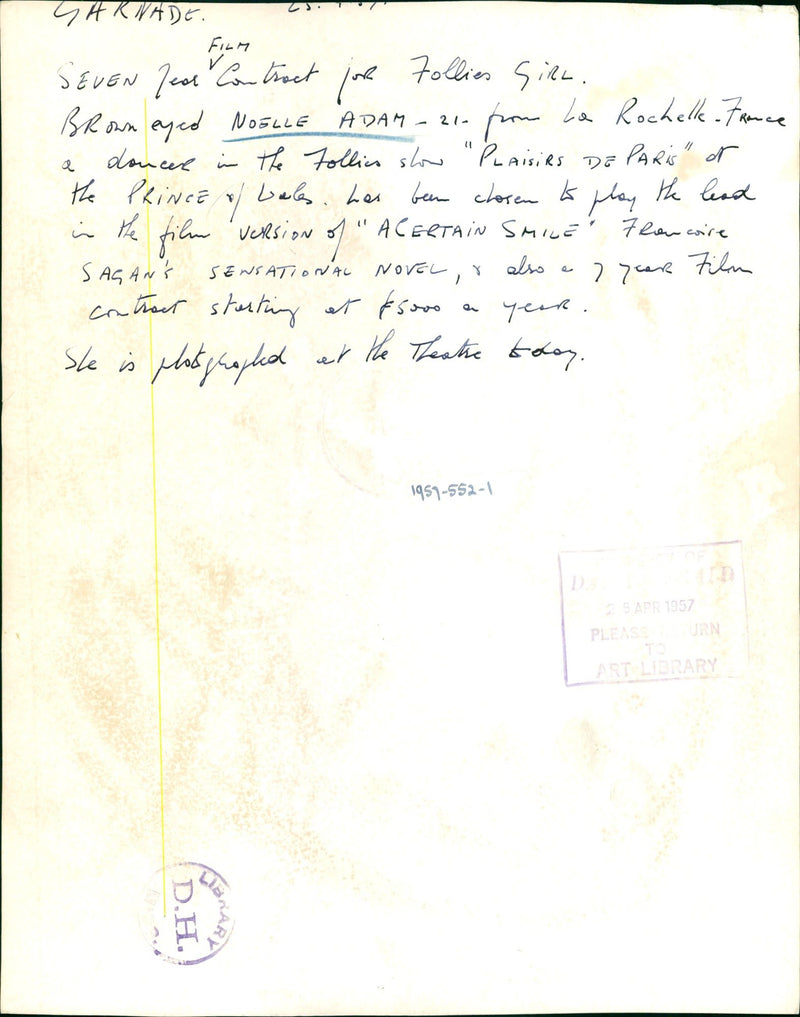 GARNADE.
FILM
SEVEN Year Contract for Follies GIRL.
BROWN eyed NOELLE ADAM - 21 - from La Rochelle - France
a dancer in the Follies show "PLAISIRS DE PARIS" at
the PRINCE of Wales. has been chosen to play the lead
in the film VERSION of "A CERTAIN SMILE" Francoise
SAGAN'S SENSATIONAL NOVEL, & also a 7 year Film
contract starting at £5000 a year.
She is photographed at the Theatre today.
1957-552-1
25 APR 1957
PLEASE RETURN
TO
ART LIBRARY
LIBRARY
D.H.